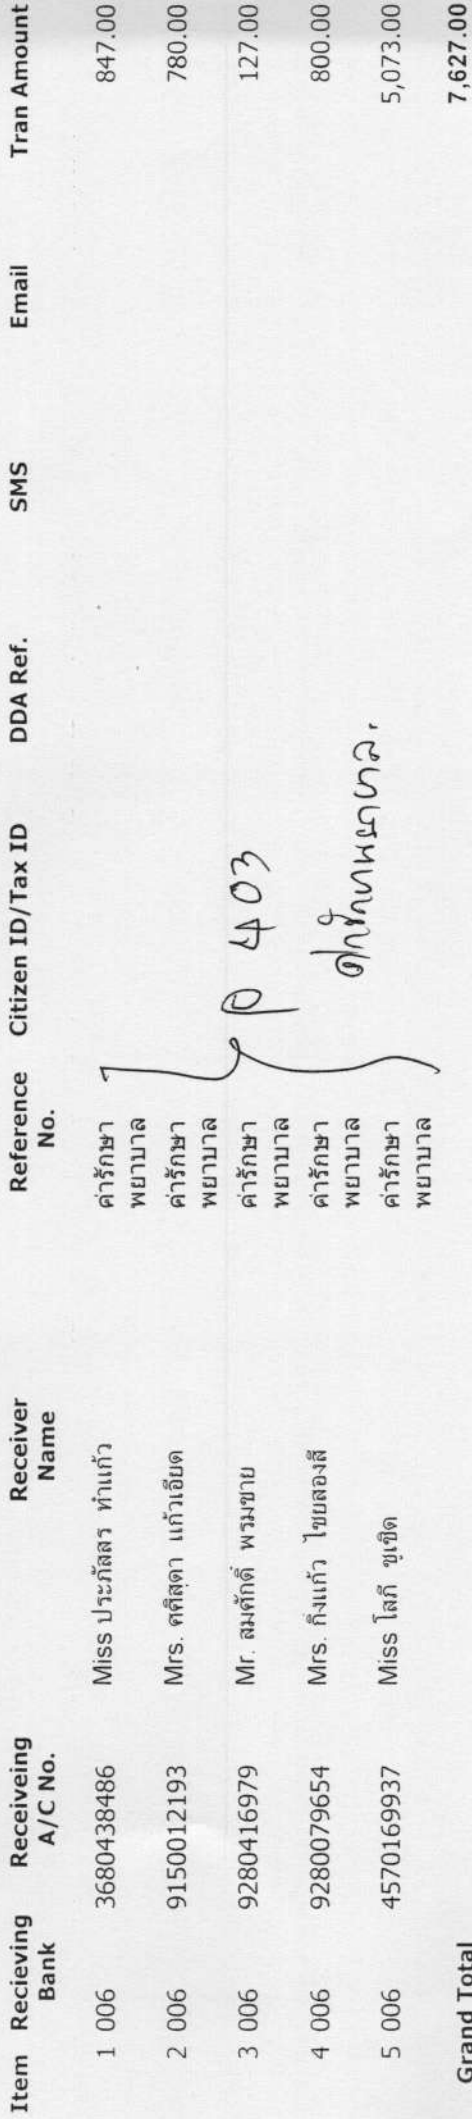 Item Recieving Bank Receiveing A/C No. Receiver Name Reference No. Citizen ID/Tax ID DDA Ref. SMS Email Tran Amount
1 006 3680438486 Miss ประภัสสร ทำแก้ว ค่ารักษา พยาบาล 847.00
2 006 9150012193 Mrs. ศศิสุดา แก้วเอียด ค่ารักษา พยาบาล 780.00
3 006 9280416979 Mr. สมศักดิ์ พรมขาย ค่ารักษา พยาบาล 127.00
4 006 9280079654 Mrs. กิ่งแก้ว ไขยสองสี ค่ารักษา พยาบาล 800.00
5 006 4570169937 Miss โสภี ชูเชิด ค่ารักษา พยาบาล 5,073.00
P 403
ค่ารักษาพยาบาล.
Grand Total 7,627.00